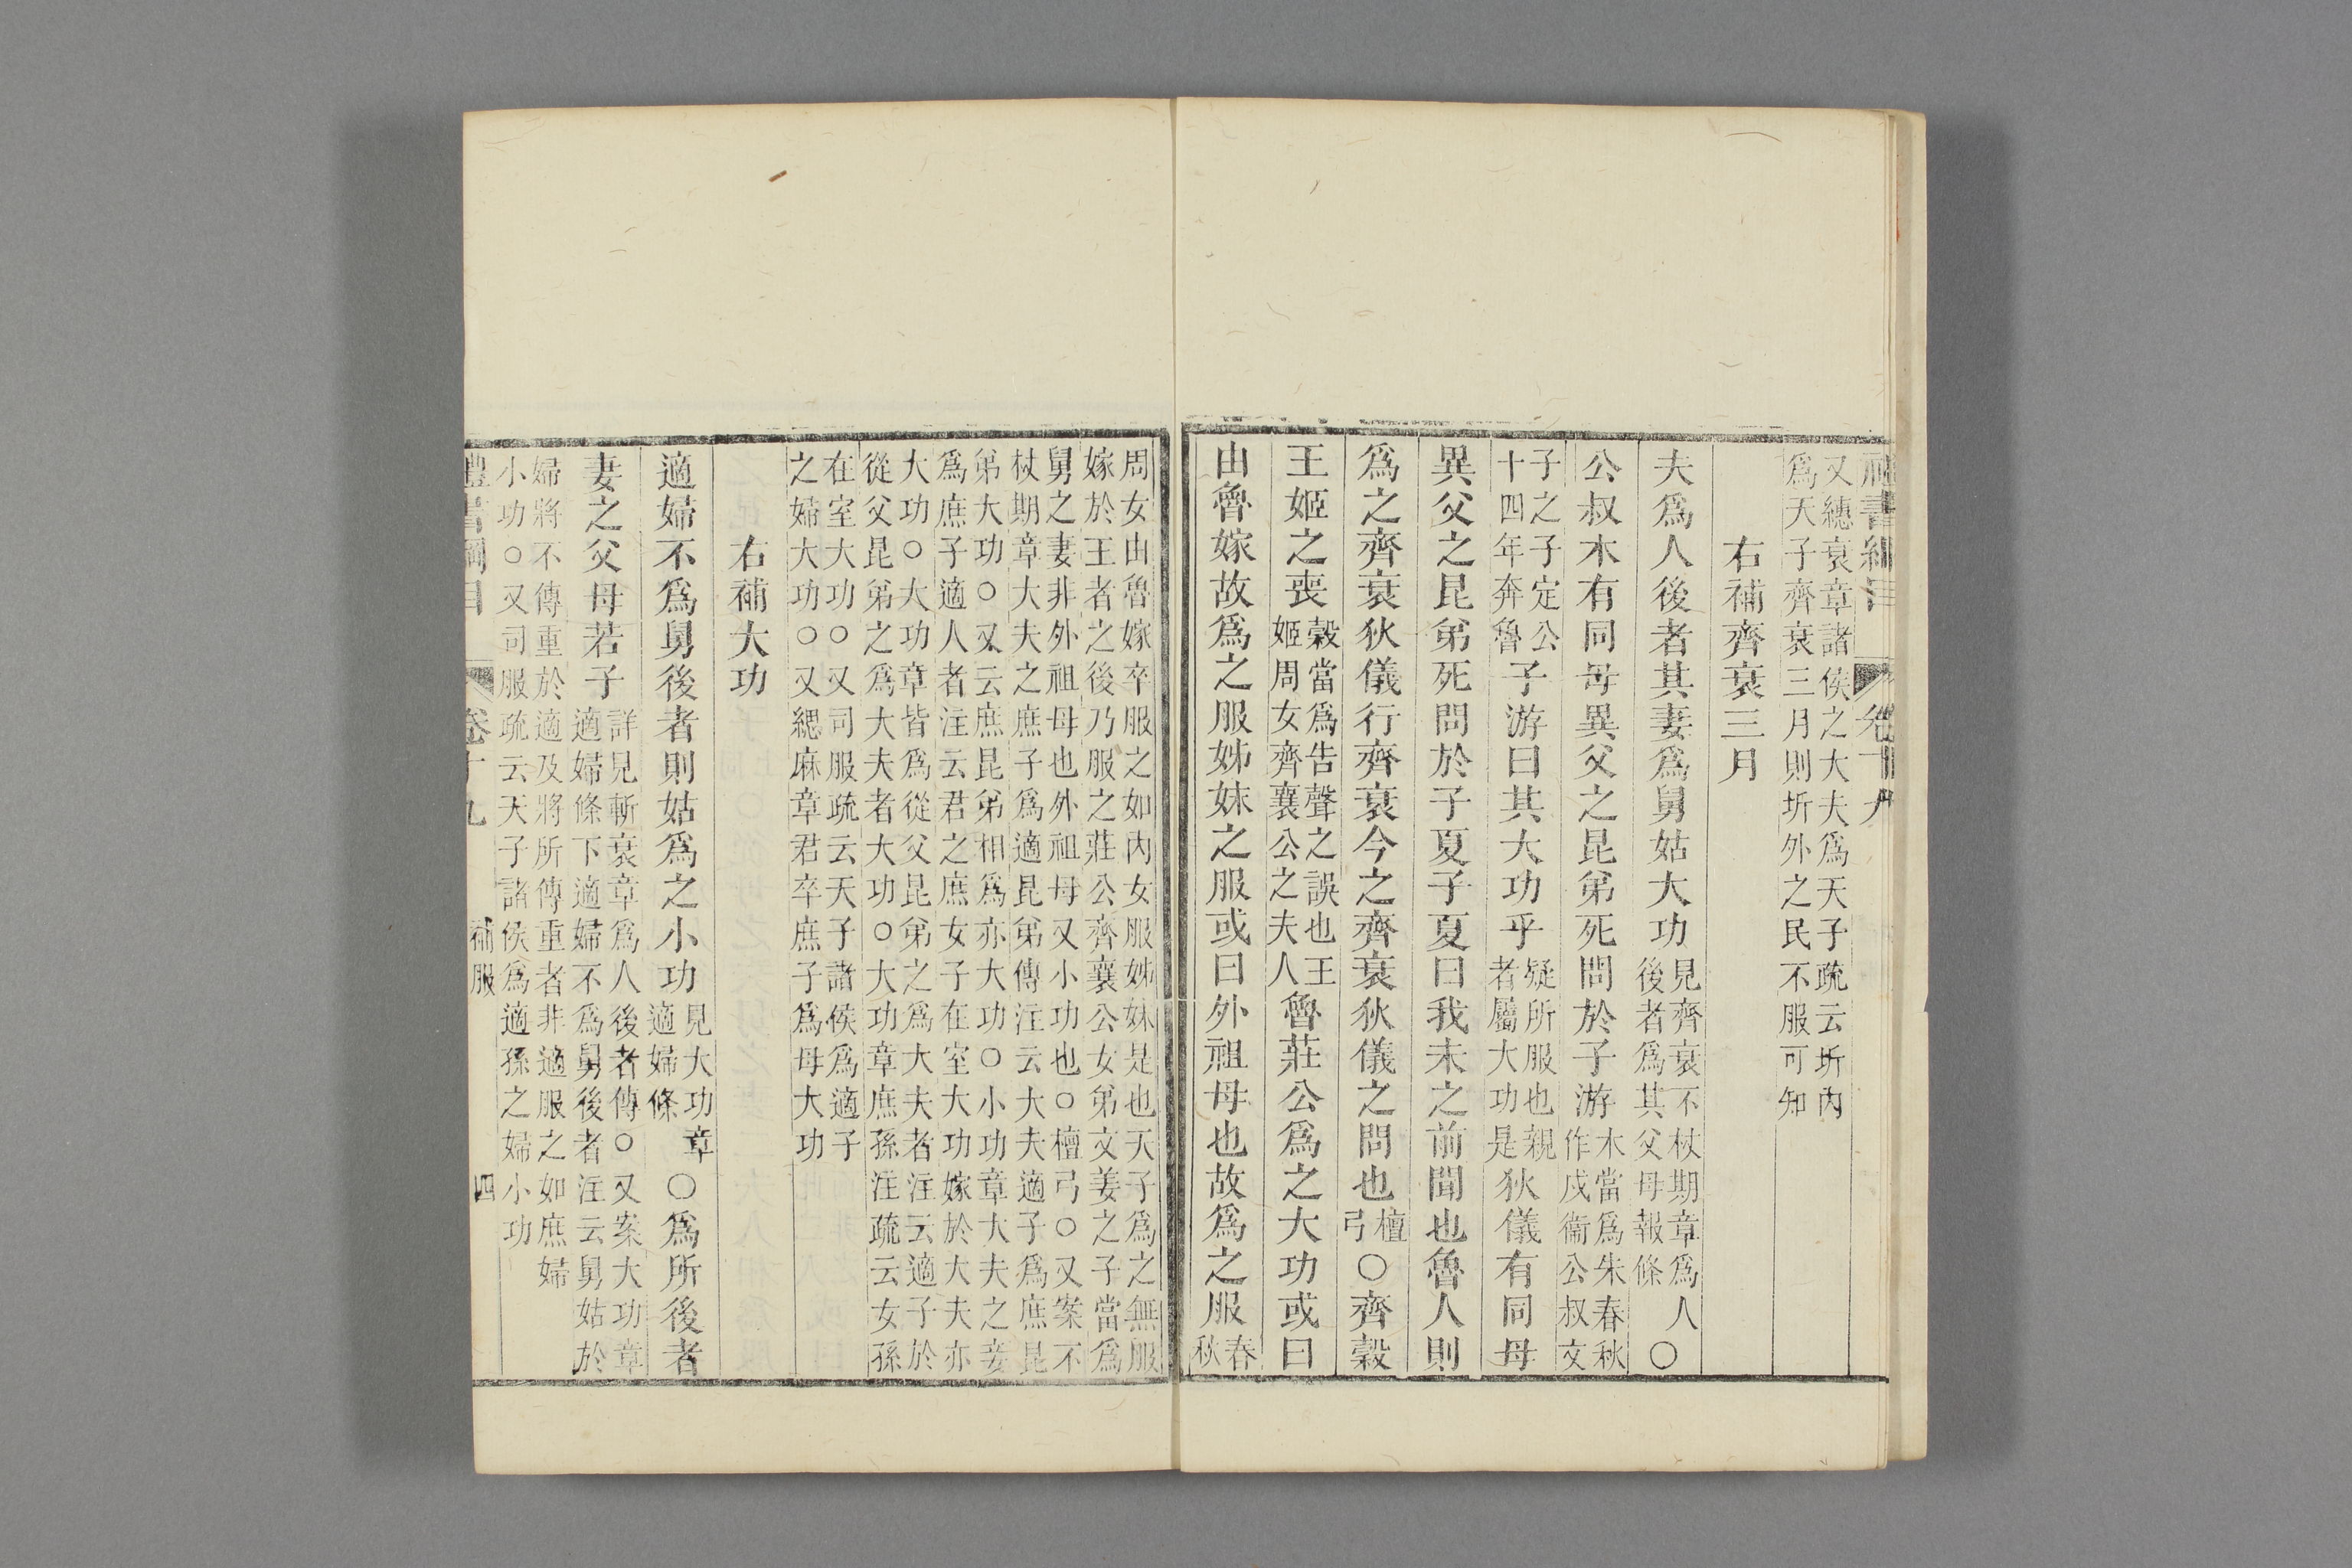 禮書綱目 卷十九
又繐衰章諸侯之大夫爲天子疏云圻內
爲天子齊衰三月則圻外之民不服可知
右補齊衰三月
夫爲人後者其妻爲舅姑大功見齊衰不杖期章爲人後者爲其父母報條○
公叔木有同母異父之昆弟死問於子游木當爲朱春秋作戍衞公叔文
子之子定公十四年奔魯子游曰其大功乎疑所服也親者屬大功是狄儀有同母
異父之昆弟死問於子夏子夏曰我未之前聞也魯人則
爲之齊衰狄儀行齊衰今之齊衰狄儀之問也檀弓○齊穀
王姬之喪穀當爲告聲之誤也王姬周女齊襄公之夫人魯莊公爲之大功或曰
由魯嫁故爲之服姊妹之服或曰外祖母也故爲之服春秋
周女由魯嫁卒服之如內女服姊妹是也天子爲之無服
嫁於王者之後乃服之莊公齊襄公女弟文姜之子當爲
舅之妻非外祖母也外祖母又小功也○檀弓○又案不
杖期章大夫之庶子爲適昆弟傳注云大夫適子爲庶昆
弟大功○又云庶昆弟相爲亦大功○小功章大夫之妾
爲庶子適人者注云君之庶女子在室大功嫁於大夫亦
大功○大功章皆爲從父昆弟之爲大夫者注云適子於
從父昆弟之爲大夫者大功○大功章庶孫注疏云女孫
在室大功○又司服疏云天子諸侯爲適子
之婦大功○又緦麻章君卒庶子爲母大功
右補大功
適婦不爲舅後者則姑爲之小功見大功章適婦條○爲所後者
妻之父母若子詳見斬衰章爲人後者傳○又案大功章適婦條下適婦不爲舅後者注云舅姑於
婦將不傳重於適及將所傳重者非適服之如庶婦
小功○又司服疏云天子諸侯爲適孫之婦小功
禮書綱目 卷十九 補服 四